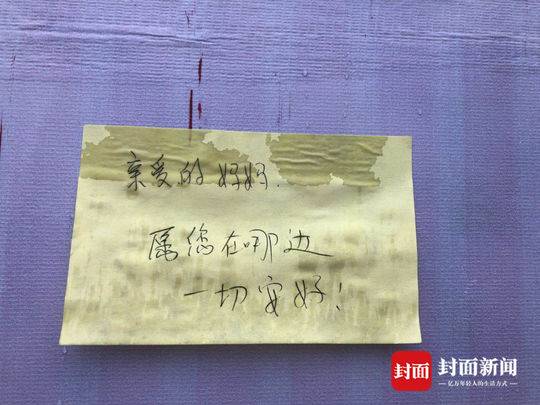 亲爱的妈妈.
愿您在哪边
一切安好!
封面 封面新闻
亿万年轻人的生活方式